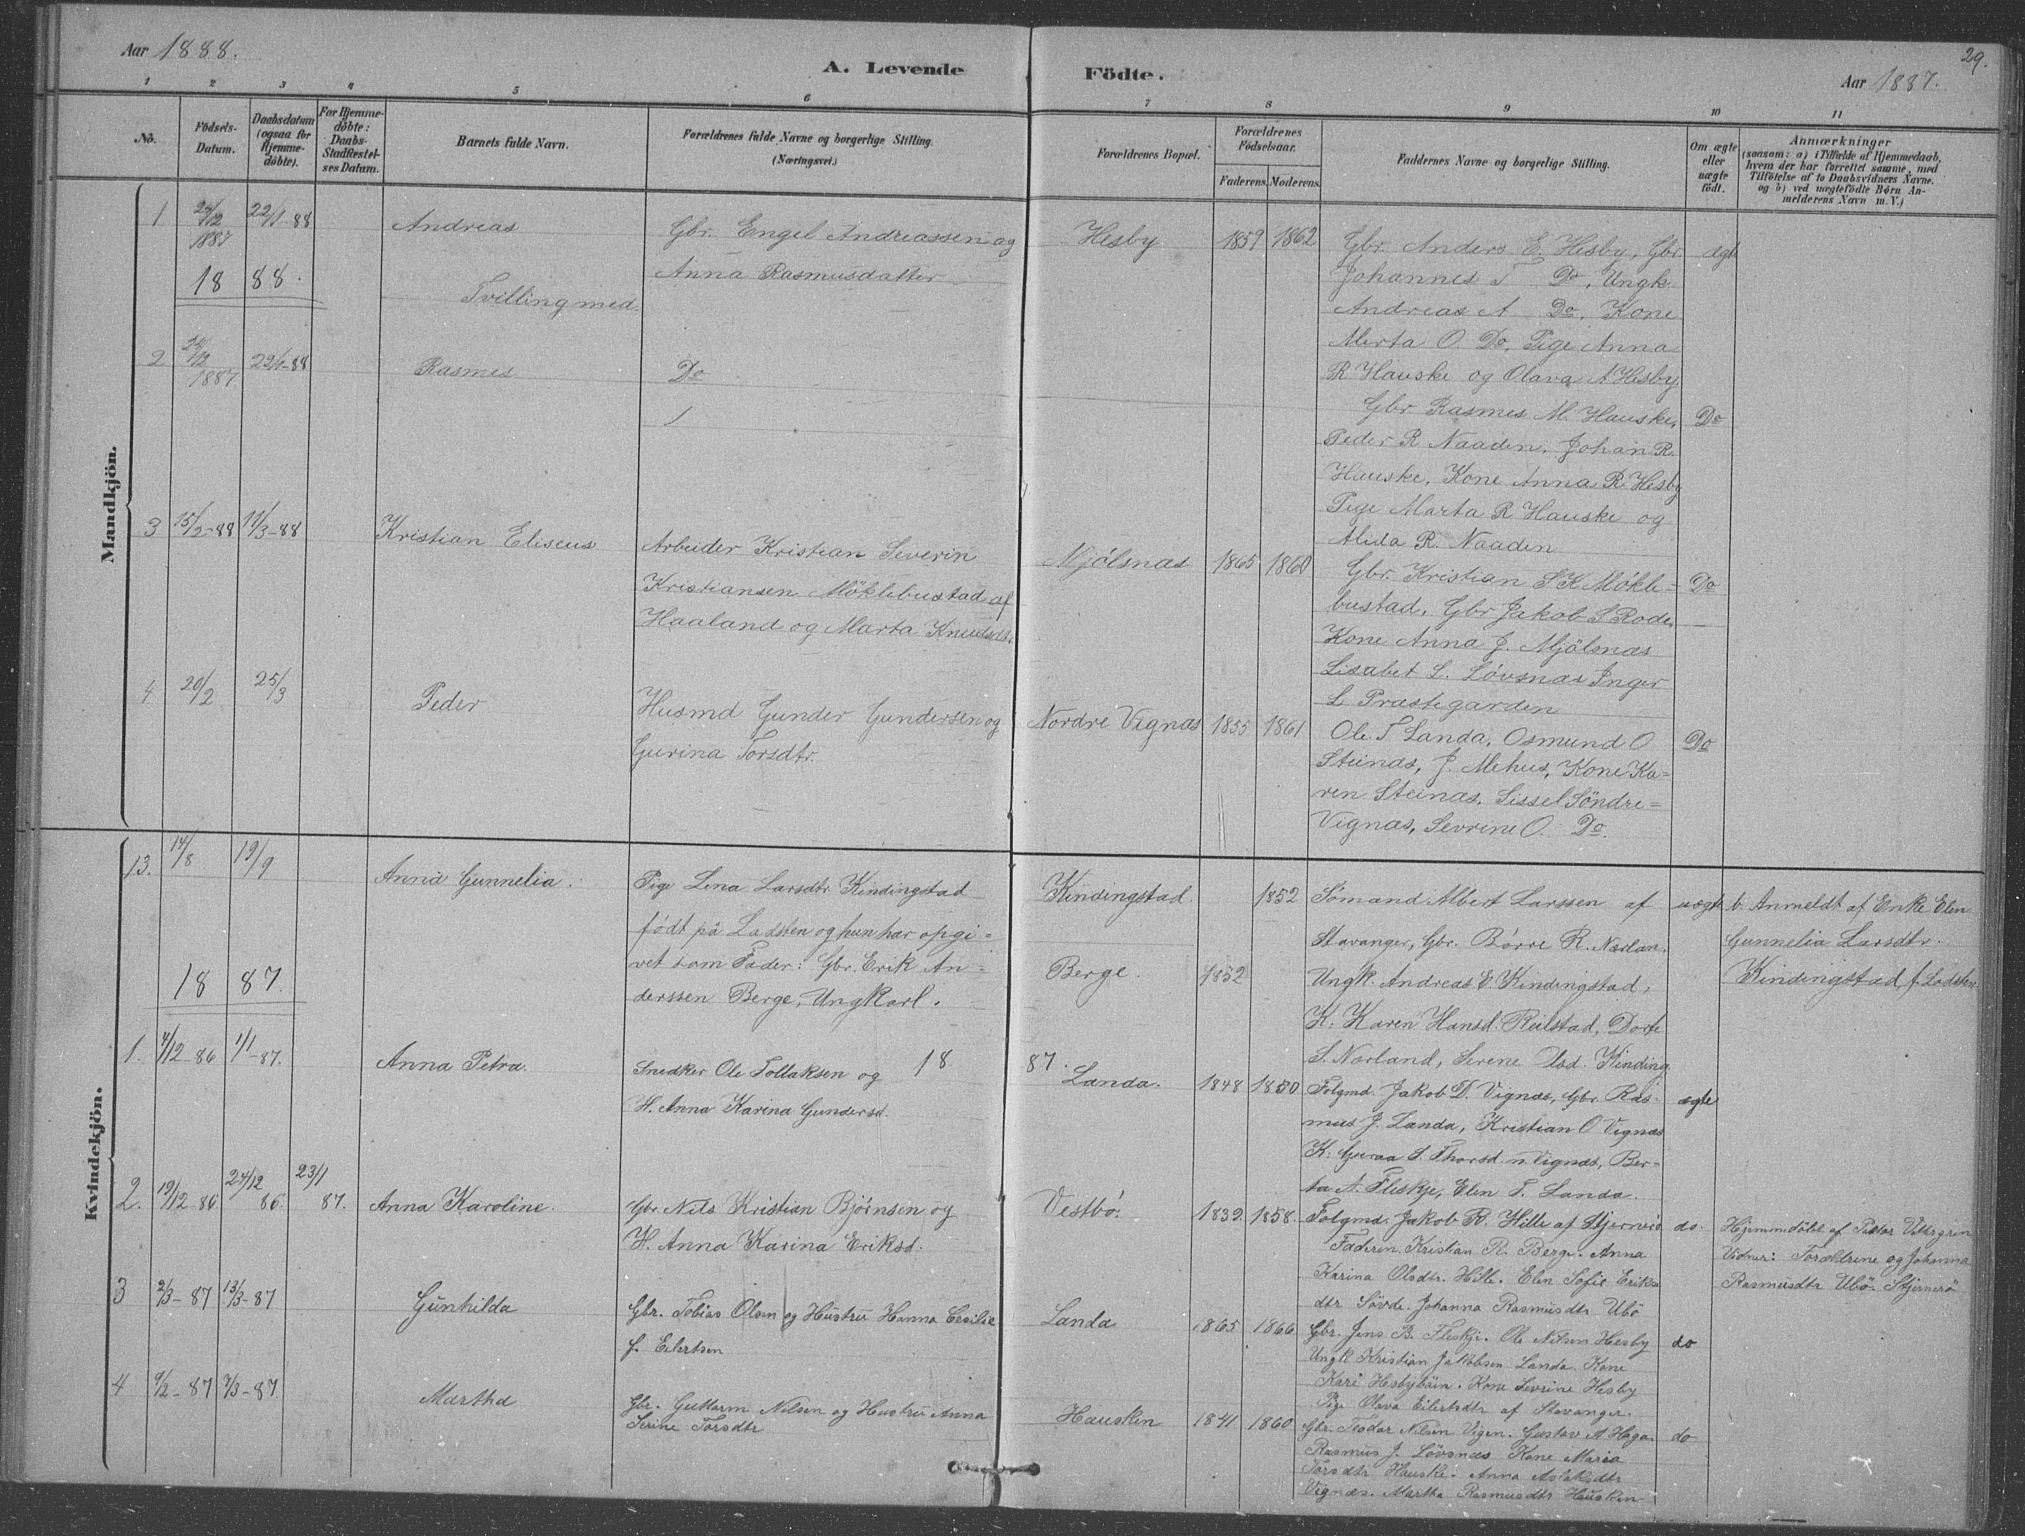 Aar 1888.
A. Levende Födte.
29.
Aar 1887.
1 2 3 4 5 6 7 8 9 10 11
No.
Födsels-Datum.
Daabsdatum (ogsaa for Hjemme-döbte).
For Hjemme-döbte: Daabs-Stadfæstel-ses Datum.
Barnets fulde Navn.
Forældrenes fulde Navne og borgerlige Stilling.
(Næringsvei.)
Forældrenes Bopæl.
Forældrenes Födselsaar.
Faderens. Moderens.
Faddernes Navne og borgerlige Stilling.
Om ægte eller uægte födt.
Anmærkninger
(saasom: a) i Tilfælde af Hjemmedaab, hvem der har forrettet samme, med Tilföielse af to Daabsvidners Navne. og b) ved uægtefödte Börn An-melderens Navn m. V.)
Mandkjön.
1 24/12 1887 22/1-88 Andreas
Gbr. Engel Andreassen og
Anna Rasmusdatter
Hesby 1859 1862
Gbr. Anders E. Hesby, Gbr.
Johannes T Do, Ungk.
Andreas A Do, Kone
Merta O. Do, Pige Anna
R. Hauske og Olava A Hesby
ægte
18 88.
Tvilling med
2 24/12 1887 22/1-88 Rasmes
Do
1
Gbr Rasmes M. Hauske,
Peder R Naaden, Johan R.
Hauske, Kone Anna R Hesby
Pige Marta R Hauske og
Alida R. Naaden
Do
3 15/2-88 11/3-88 Kristian Eliseus
Arbeider Kristian Severin
Kristiansen Möklebustad af
Haaland og Marta Knudsdtr.
Mjölsnæs 1865 1860
Gbr. Kristian S K Mökle-
bustad, Gbr Jakob S Rode,
Kone Anna J. Mjölsnæs
Lisabet L. Lövsnæs Inger
L Præstegarden
Do
4 20/2 25/3 Peder
Husmd Gunder Gundersen og
Gurina Torsdtr.
Nordre Vignæs 1855 1861
Ole T Landa, Osmund O
Steinas, J. Mehus, Kone Ka-
ren Steinas, Sissel Söndre-
Vignæs, Sevrine O. Do.
Do
Kvindekjön.
13. 14/8 19/9 Anna Gunnelia.
Pige Lena Larsdtr Kindingstad
født på Ladsten og hun har opgi-
vet som Fader: Gbr. Erik An-
derssen Berge, Ungkarl.
Kindingstad. 1852
Berge. 1832
Sömand Albert Larssen af
Stavanger, Gbr. Börre R. Nærlan.
Ungk. Andreas E. Kindingstad,
K. Karen Hansd. Reilstad, Dorte
S. Nærland, Serine Olsd. Kinding
uægte
b. Anmeldt af Enke Elen
Gunnelia Larsdtr.
Kindingstad, f. Ladsten
18 87.
1. 4/12-86 1/1-87. Anna Petra.
Snedker Ole Tollaksen og
H. Anna Karina Gundersd.
18 87.
Landa. 1848 1850
Folgmd. Jakob D. Vignæs, Gbr. Ras-
mus J. Landa, Kristian O. Vignæs
K. Guraa S. Thorsd. n. Vignæs, Ber-
ta A. Fleskje, Elen T. Landa.
ægte
2. 19/12-86 24/12 86. 23/1 87. Anna Karoline.
Gbr. Nils Kristian Bjørnsen og
H. Anna Karina Eriksd.
Vestbö. 1832 1858
Folgmd. Jakob R. Hille af Stjernrö
Faderen Kristian R. Berge. Anna
Karina Olsdtr. Hille. Elen Sofie Eriks
dtr Sövde. Johanna Rasmusdtr Ubö
do.
Hjemmedöbt af Pastor
Vidner: Foræeldrene og Johanna
Rasmusdtr Ubö. Stjernerö
3 2/3-87 13/3-87 Gunhilda
Gbr. Tobias Olsen og Hustru Hanna Cesilie
f. Eilertsen
Landa 1865 1866
Gbr. Jens B. Fleskje. Ole Nilsen Hesby
Ungk Kristian Jakobsen Landa. Kone
Kari Hesbyböen. Kone Sevrine Hesby
Pige Olava Eilertsdtr af Stavanger.
do
4 9/2-87 7/3-87. Martha
Gbr. Guttorm Nilsen og Hustru Anna
Serine Torsdtr
Hausken 1841 1860
Gbr. Teodor Nilsen Vigen. Gustav A Haga
Rasmus J. Lövsnæs Kone Maria
Torsdtr Hauske. Anna Aslaksdtr
Vignæs. Martha Rasmusdtr Hausken
do